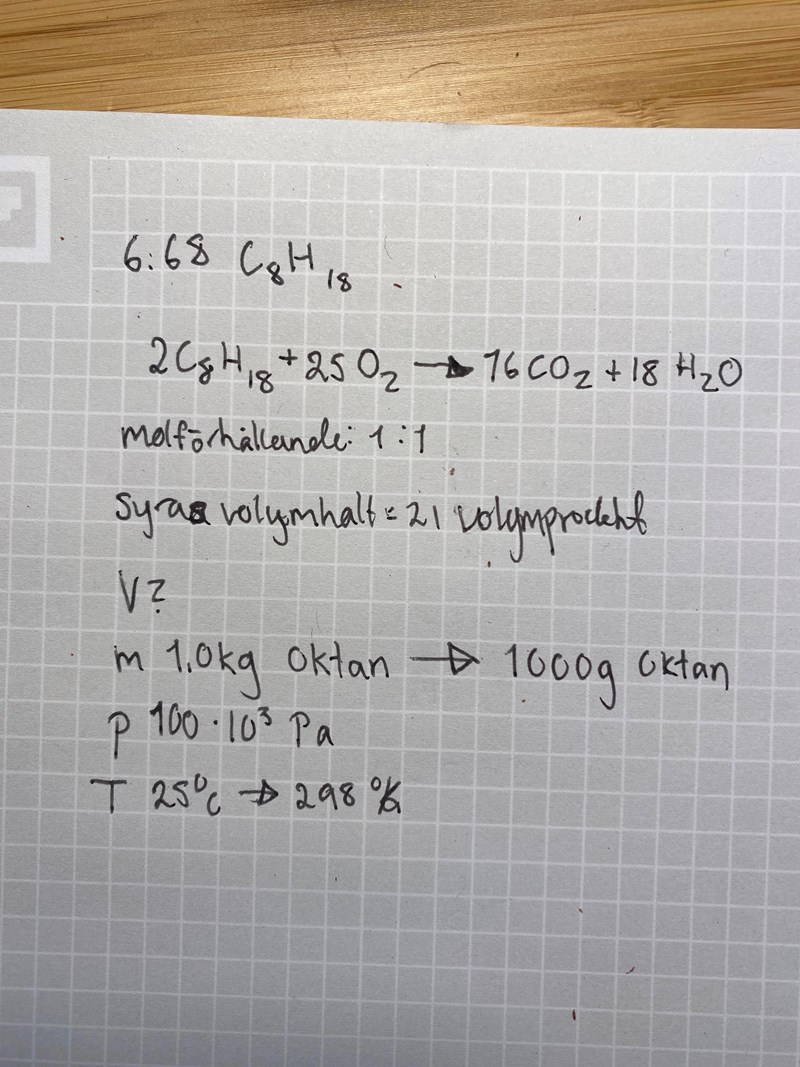 6:68 C₈H₁₈
2C₈H₁₈ + 25O₂ → 16CO₂ + 18H₂O
molförhållande: 1:1
syras volymhalt = 21 volymprocent
V?
m 1.0kg oktan → 1000g oktan
p 100·10³ Pa
T 25°C → 298 °K